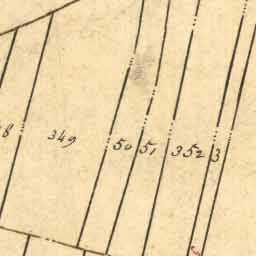 8 349 50 51 352 3